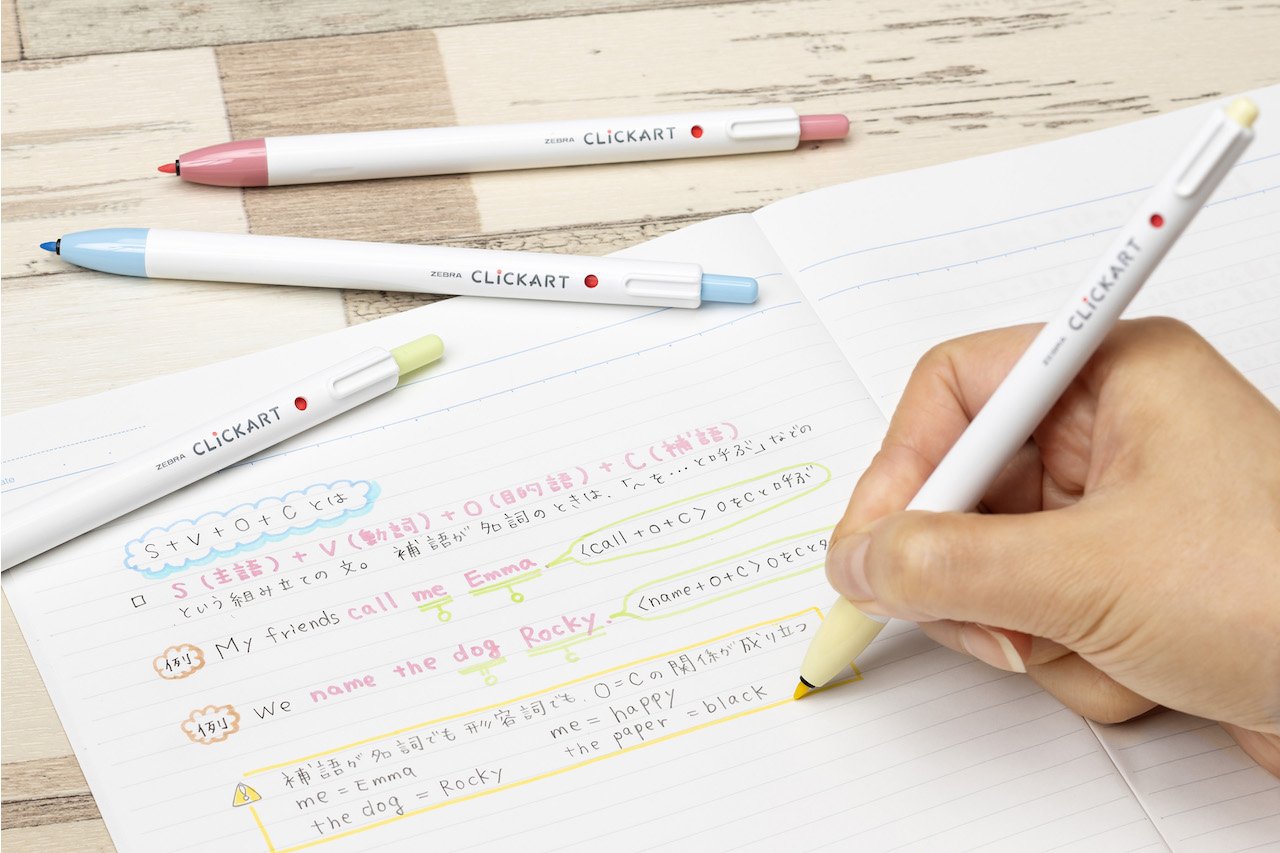 ZEBRA CLiCKART
ZEBRA CLiCKART
ZEBRA CLiCKART
ZEBRA CLiCKART
S+V+O+Cとは
S(主語)+V(動詞)+O(目的語)+C(補語)
という組み立ての文。補語が名詞のときは、「〜を…と呼ぶ」などの
例 My friends call me Emma.
<call+O+C> OをCと呼ぶ
例 We name the dog Rocky.
<name+O+C> OをCと
補語が名詞でも形容詞でも、O=Cの関係が成り立つ
me=Emma me=happy
the dog=Rocky the paper=black